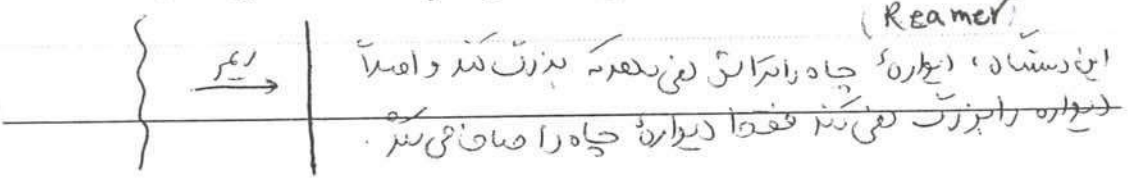 (Reamer)
ریمر
این دستگاه، دیوارهٔ چاه را تراش نمی‌دهد که بزرگ کند و اصلاً
دیواره را بزرگ نمی‌کند فقط دیوارهٔ چاه را صاف می‌کند.